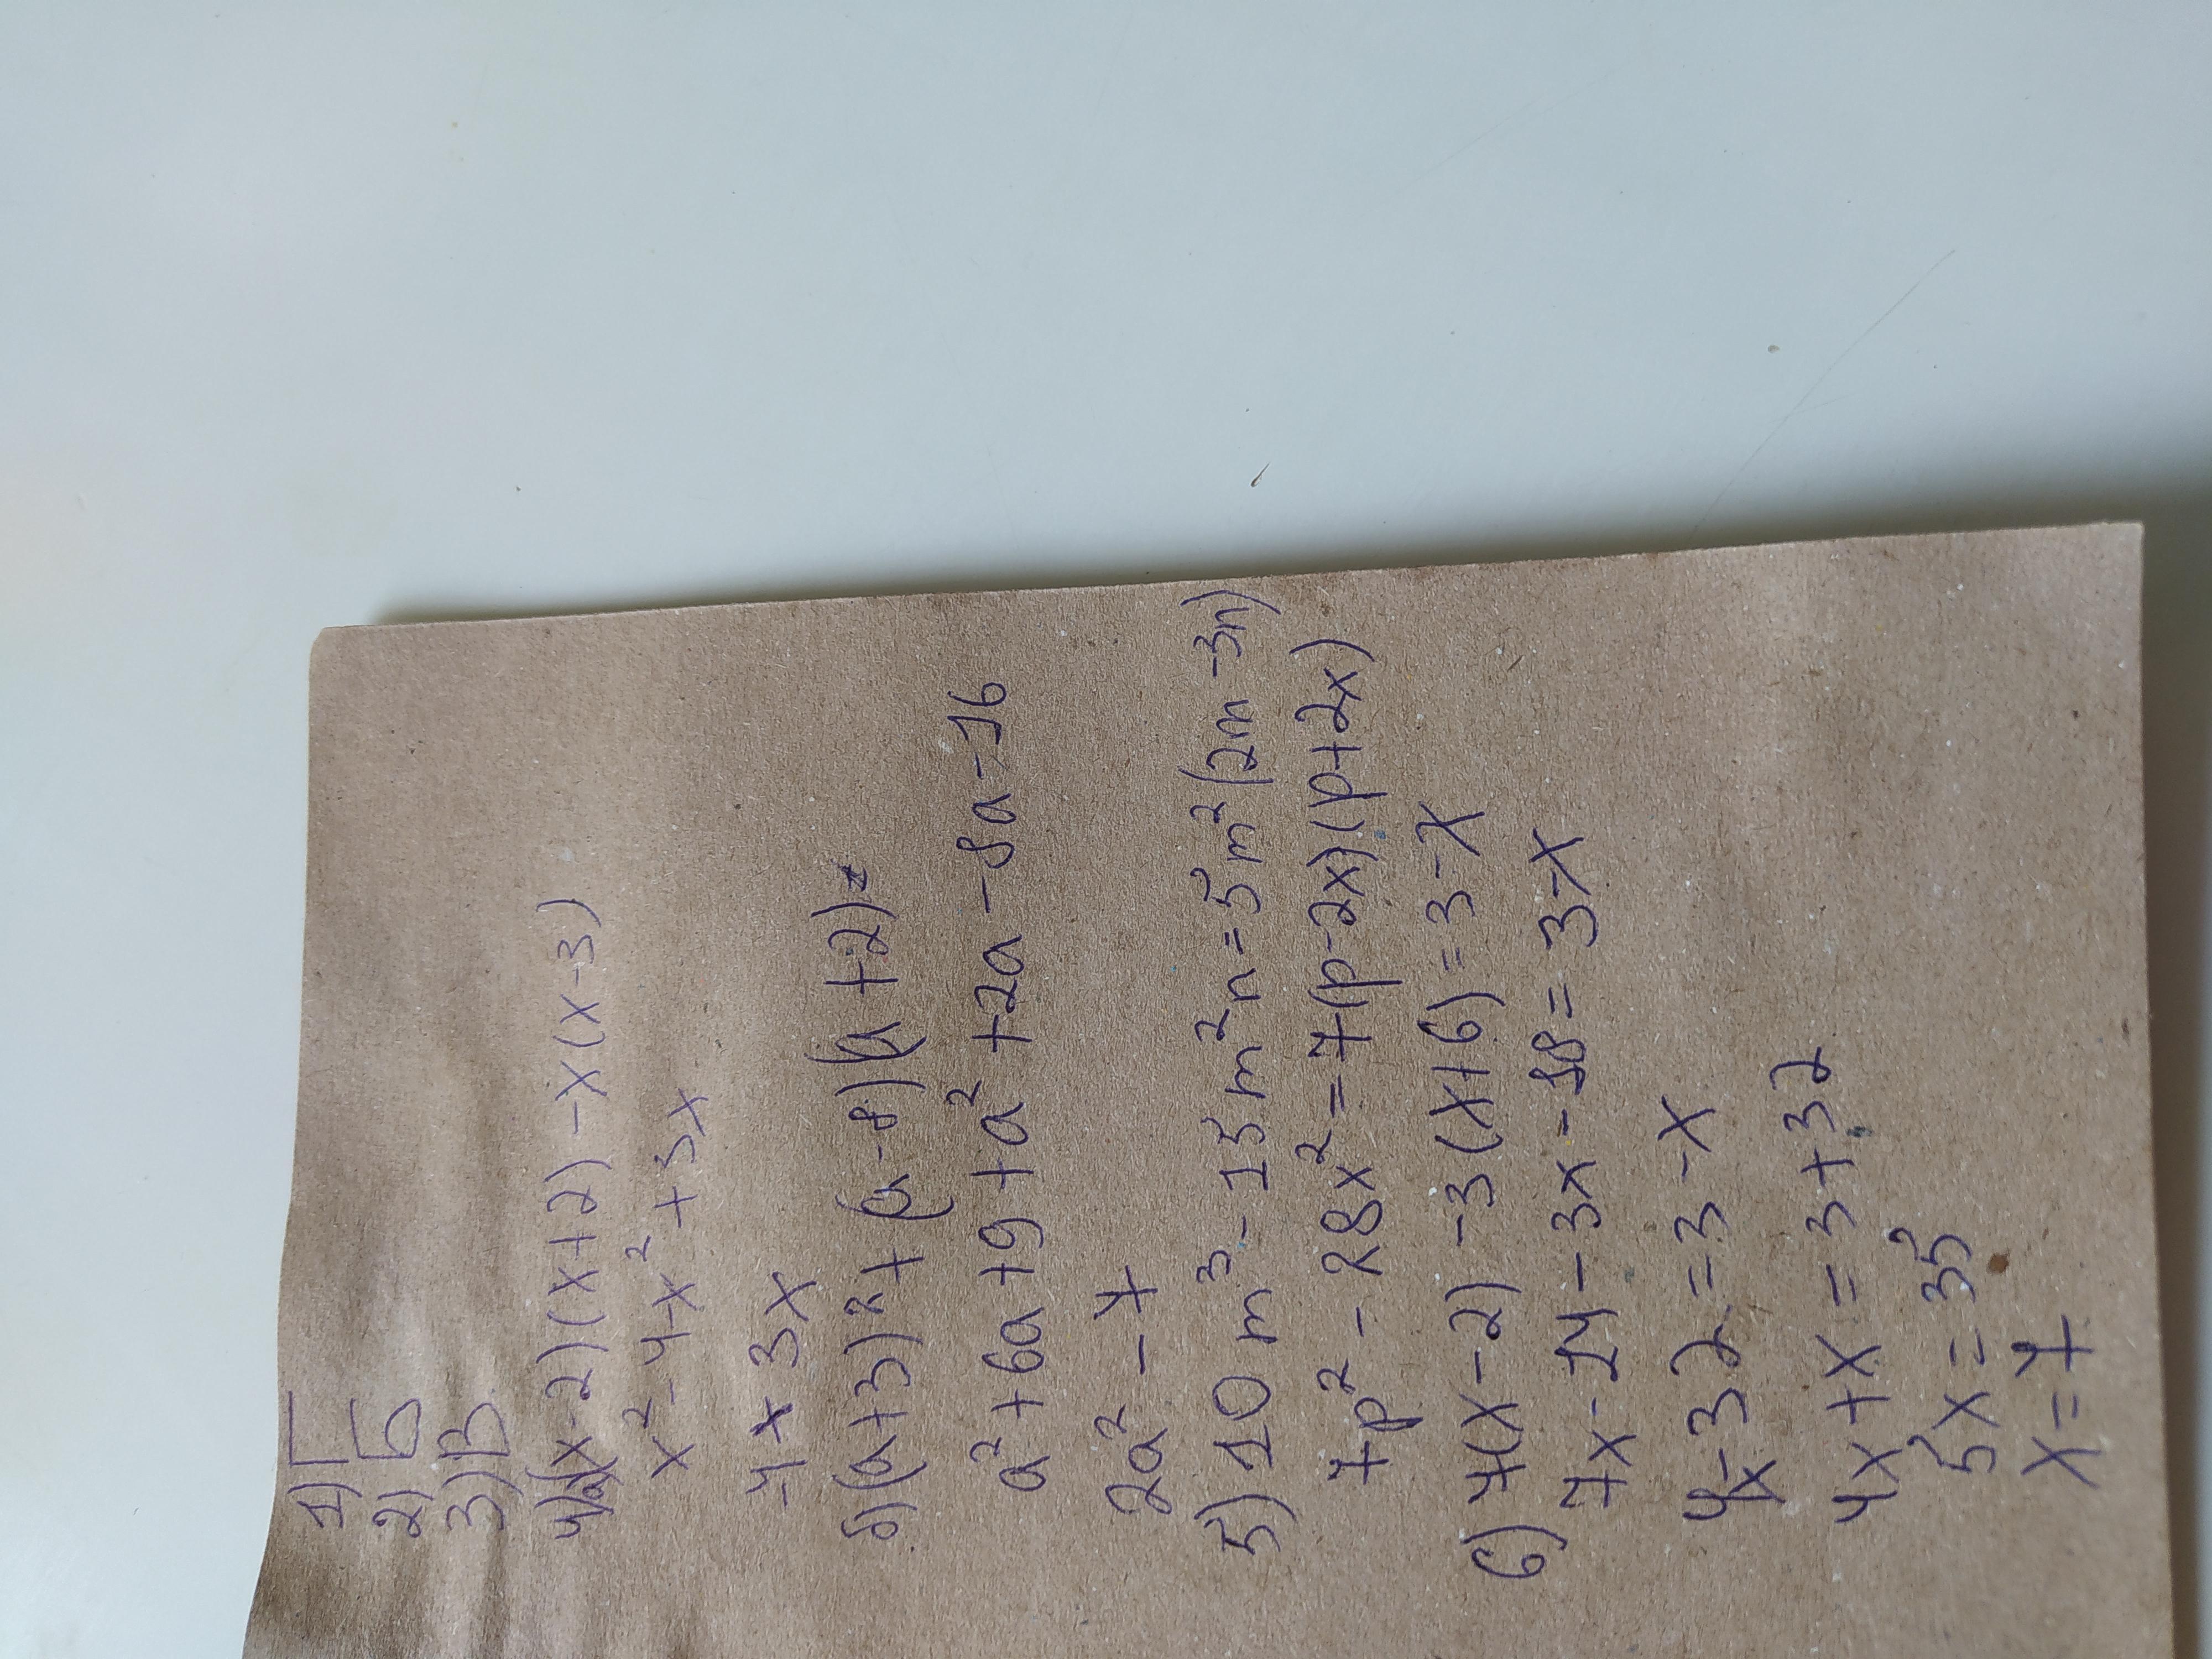 1) Г
2) Б
3) В
4) а) (x-2)(x+2)-x(x-3)
x²-4-x²+3x
-4+3x
б) (a+3)²+(a-8)(a+2)=
a²+6a+9+a²+2a-8a-16
2a²-7
5) 10m³-15m²n=5m²(2m-3n)
7p²-28x²=7(p-2x)(p+2x)
6) 7(x-2)-3(x+6)=3-x
7x-14-3x-18=3-x
4x-32=3-x
4x+x=3+32
5x=35
x=7